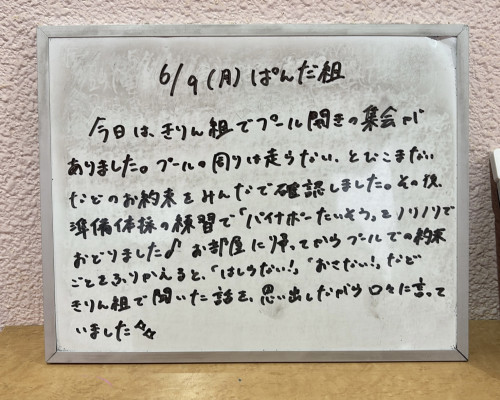 6/9(月)ぱんだ組
今日は、きりん組でプール開きの集会が
ありました。プールの周りは走らない、とびこまない
などのお約束をみんなで確認しました。その後、
準備体操の練習で「パイナポーたいそう」をノリノリで
おどりました♪ お部屋に帰ってからプールでの約束
ごとをふりかえると、「はしらない!」「おさない!」など
きりん組で聞いた話を、思い出しながら口々に言って
いました☆☆